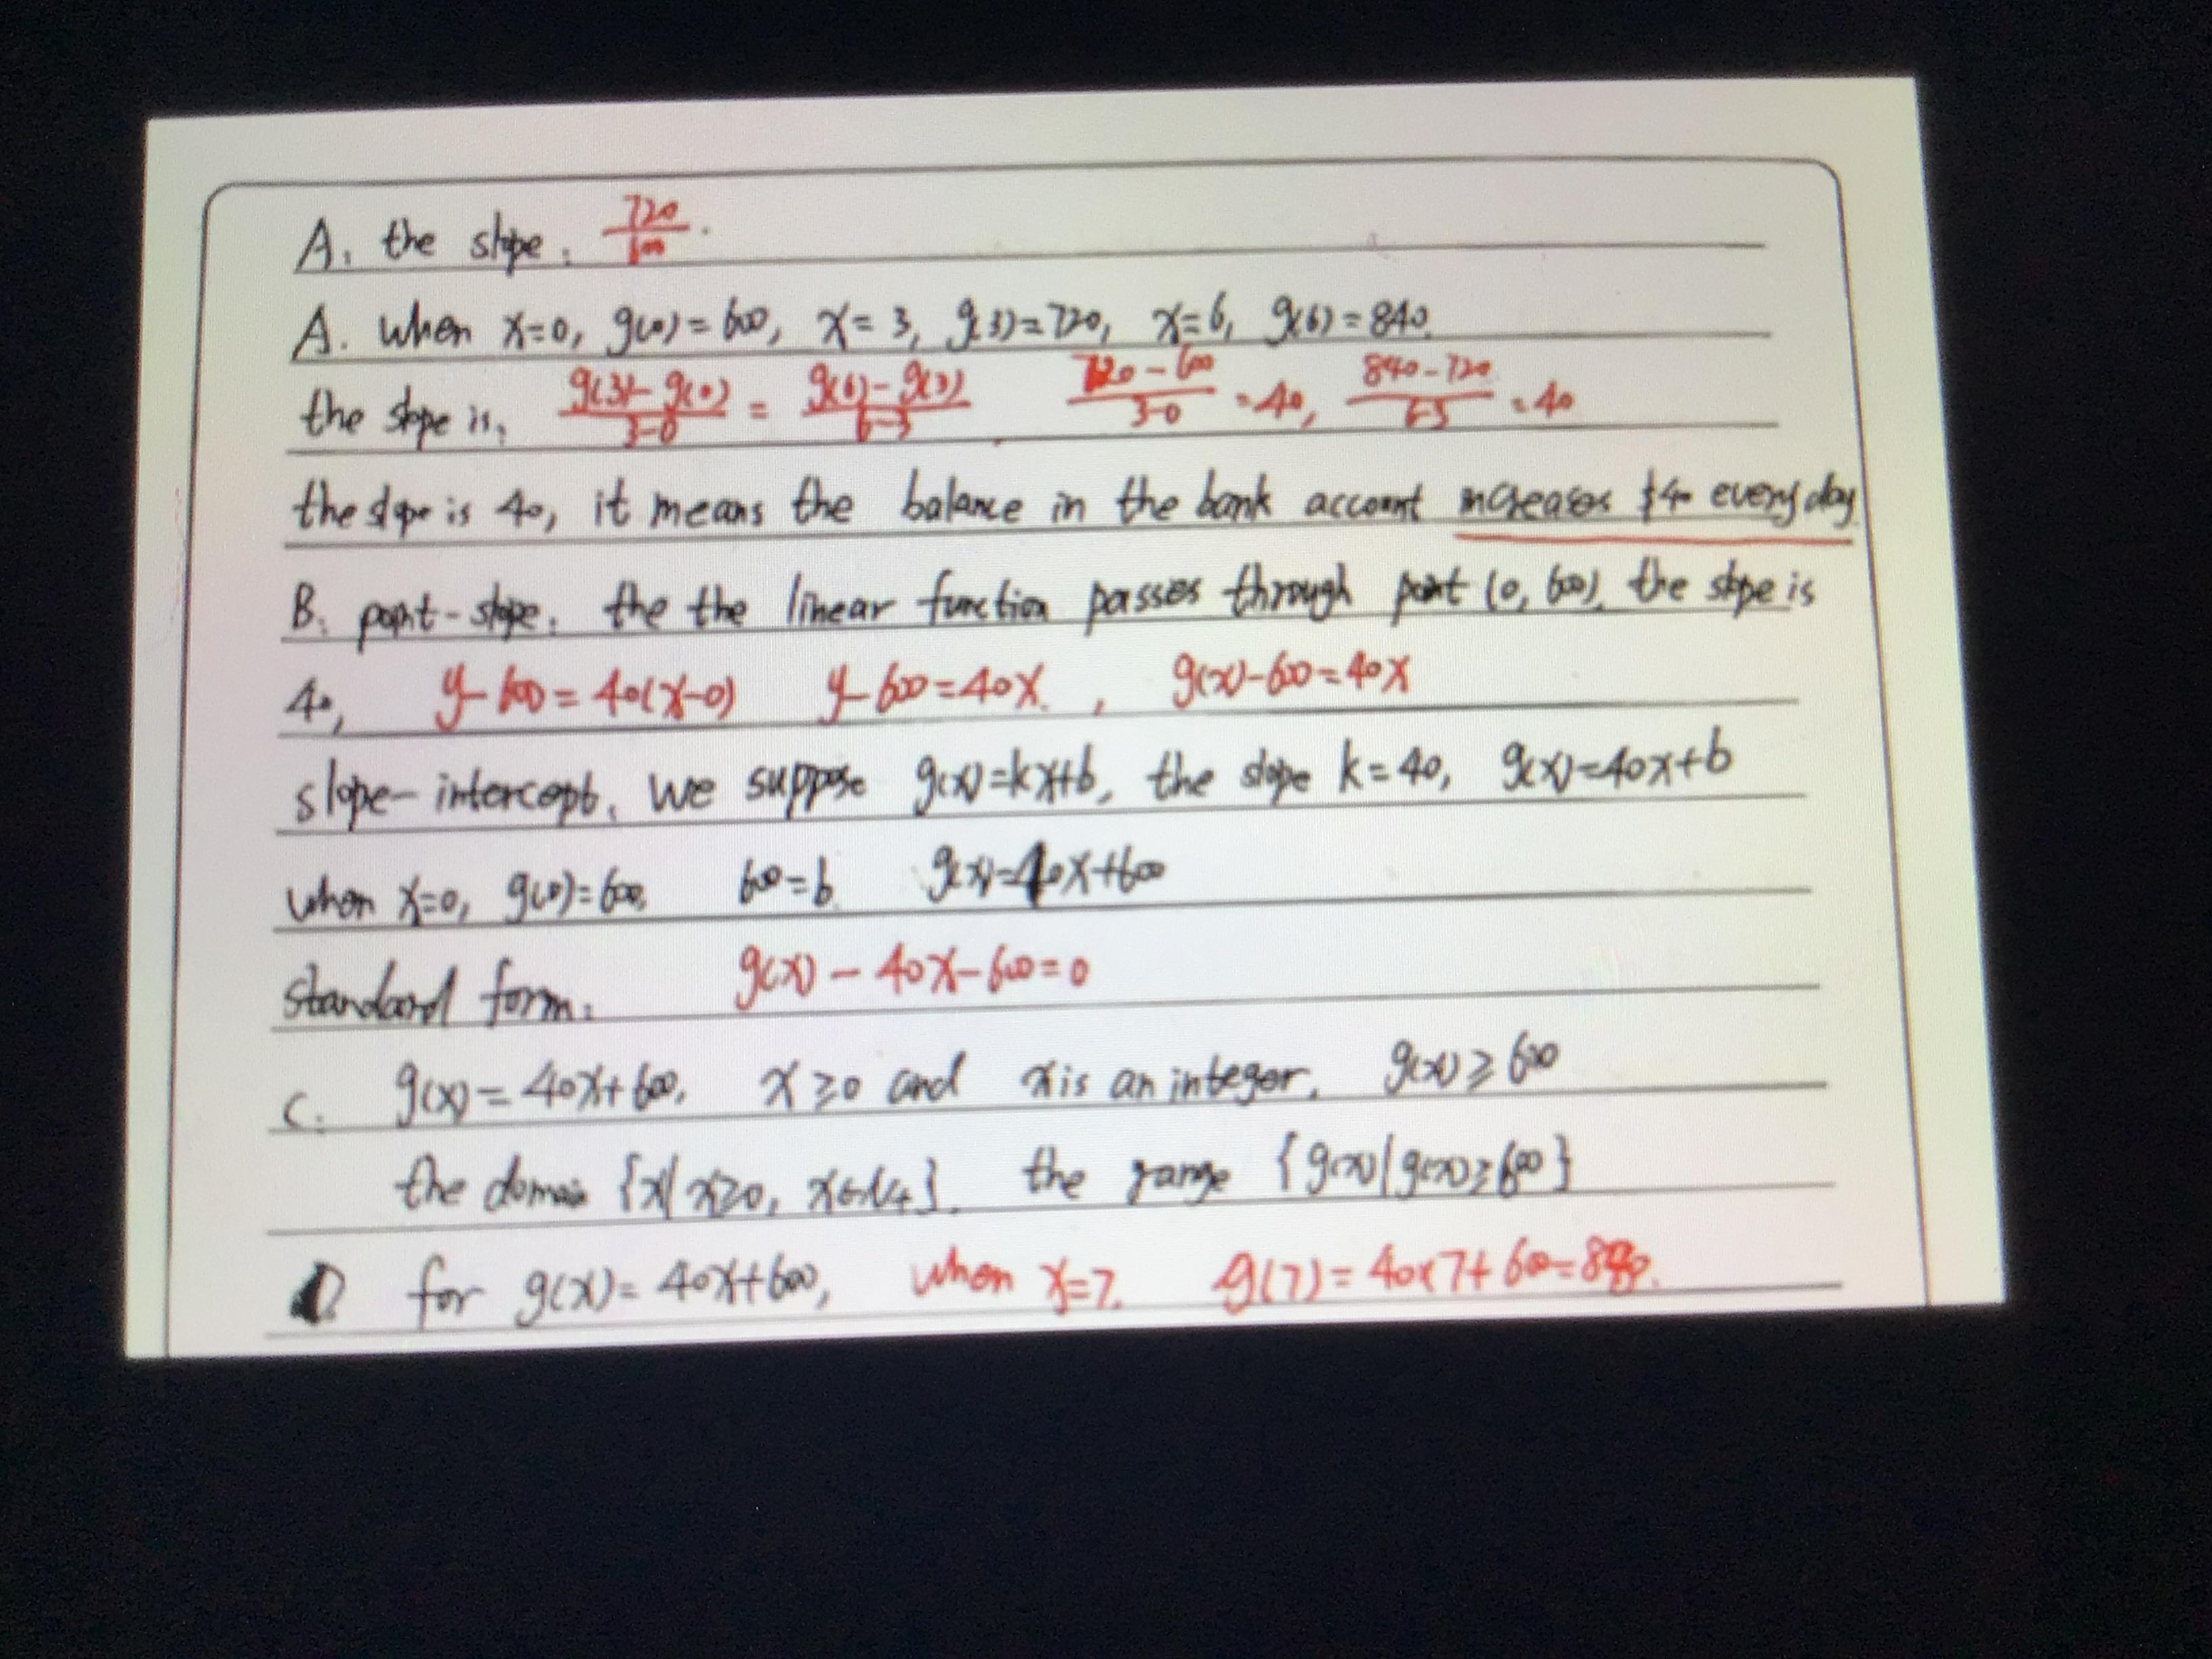 A. the slope: 720/600.
A. when x=0, g(0)=600, x=3, g(3)=720, x=6, g(6)=840.
the slope is, g(3)-g(0)/3-0 = g(6)-g(3)/6-3 720-600/3-0 =40, 840-720/6-3 =40
the slope is 40, it means the balance in the bank account increases $40 every day
B. point-slope: the the linear function passes through point (0, 600), the slope is
40, y-600=40(x-0) y-600=40x, g(x)-600=40x
slope-intercept, we suppose g(x)=kx+b, the slope k=40, g(x)=40x+b
when x=0, g(0)=600, 600=b g(x)=40x+600
standard form: g(x)-40x-600=0
C. g(x)=40x+600, x≥0 and x is an integer, g(x)≥600
the domain {x|x≥0, the range {g(x)|g(x)≥600}
D for g(x)=40x+600, when x=7, g(7)=40×7+600=